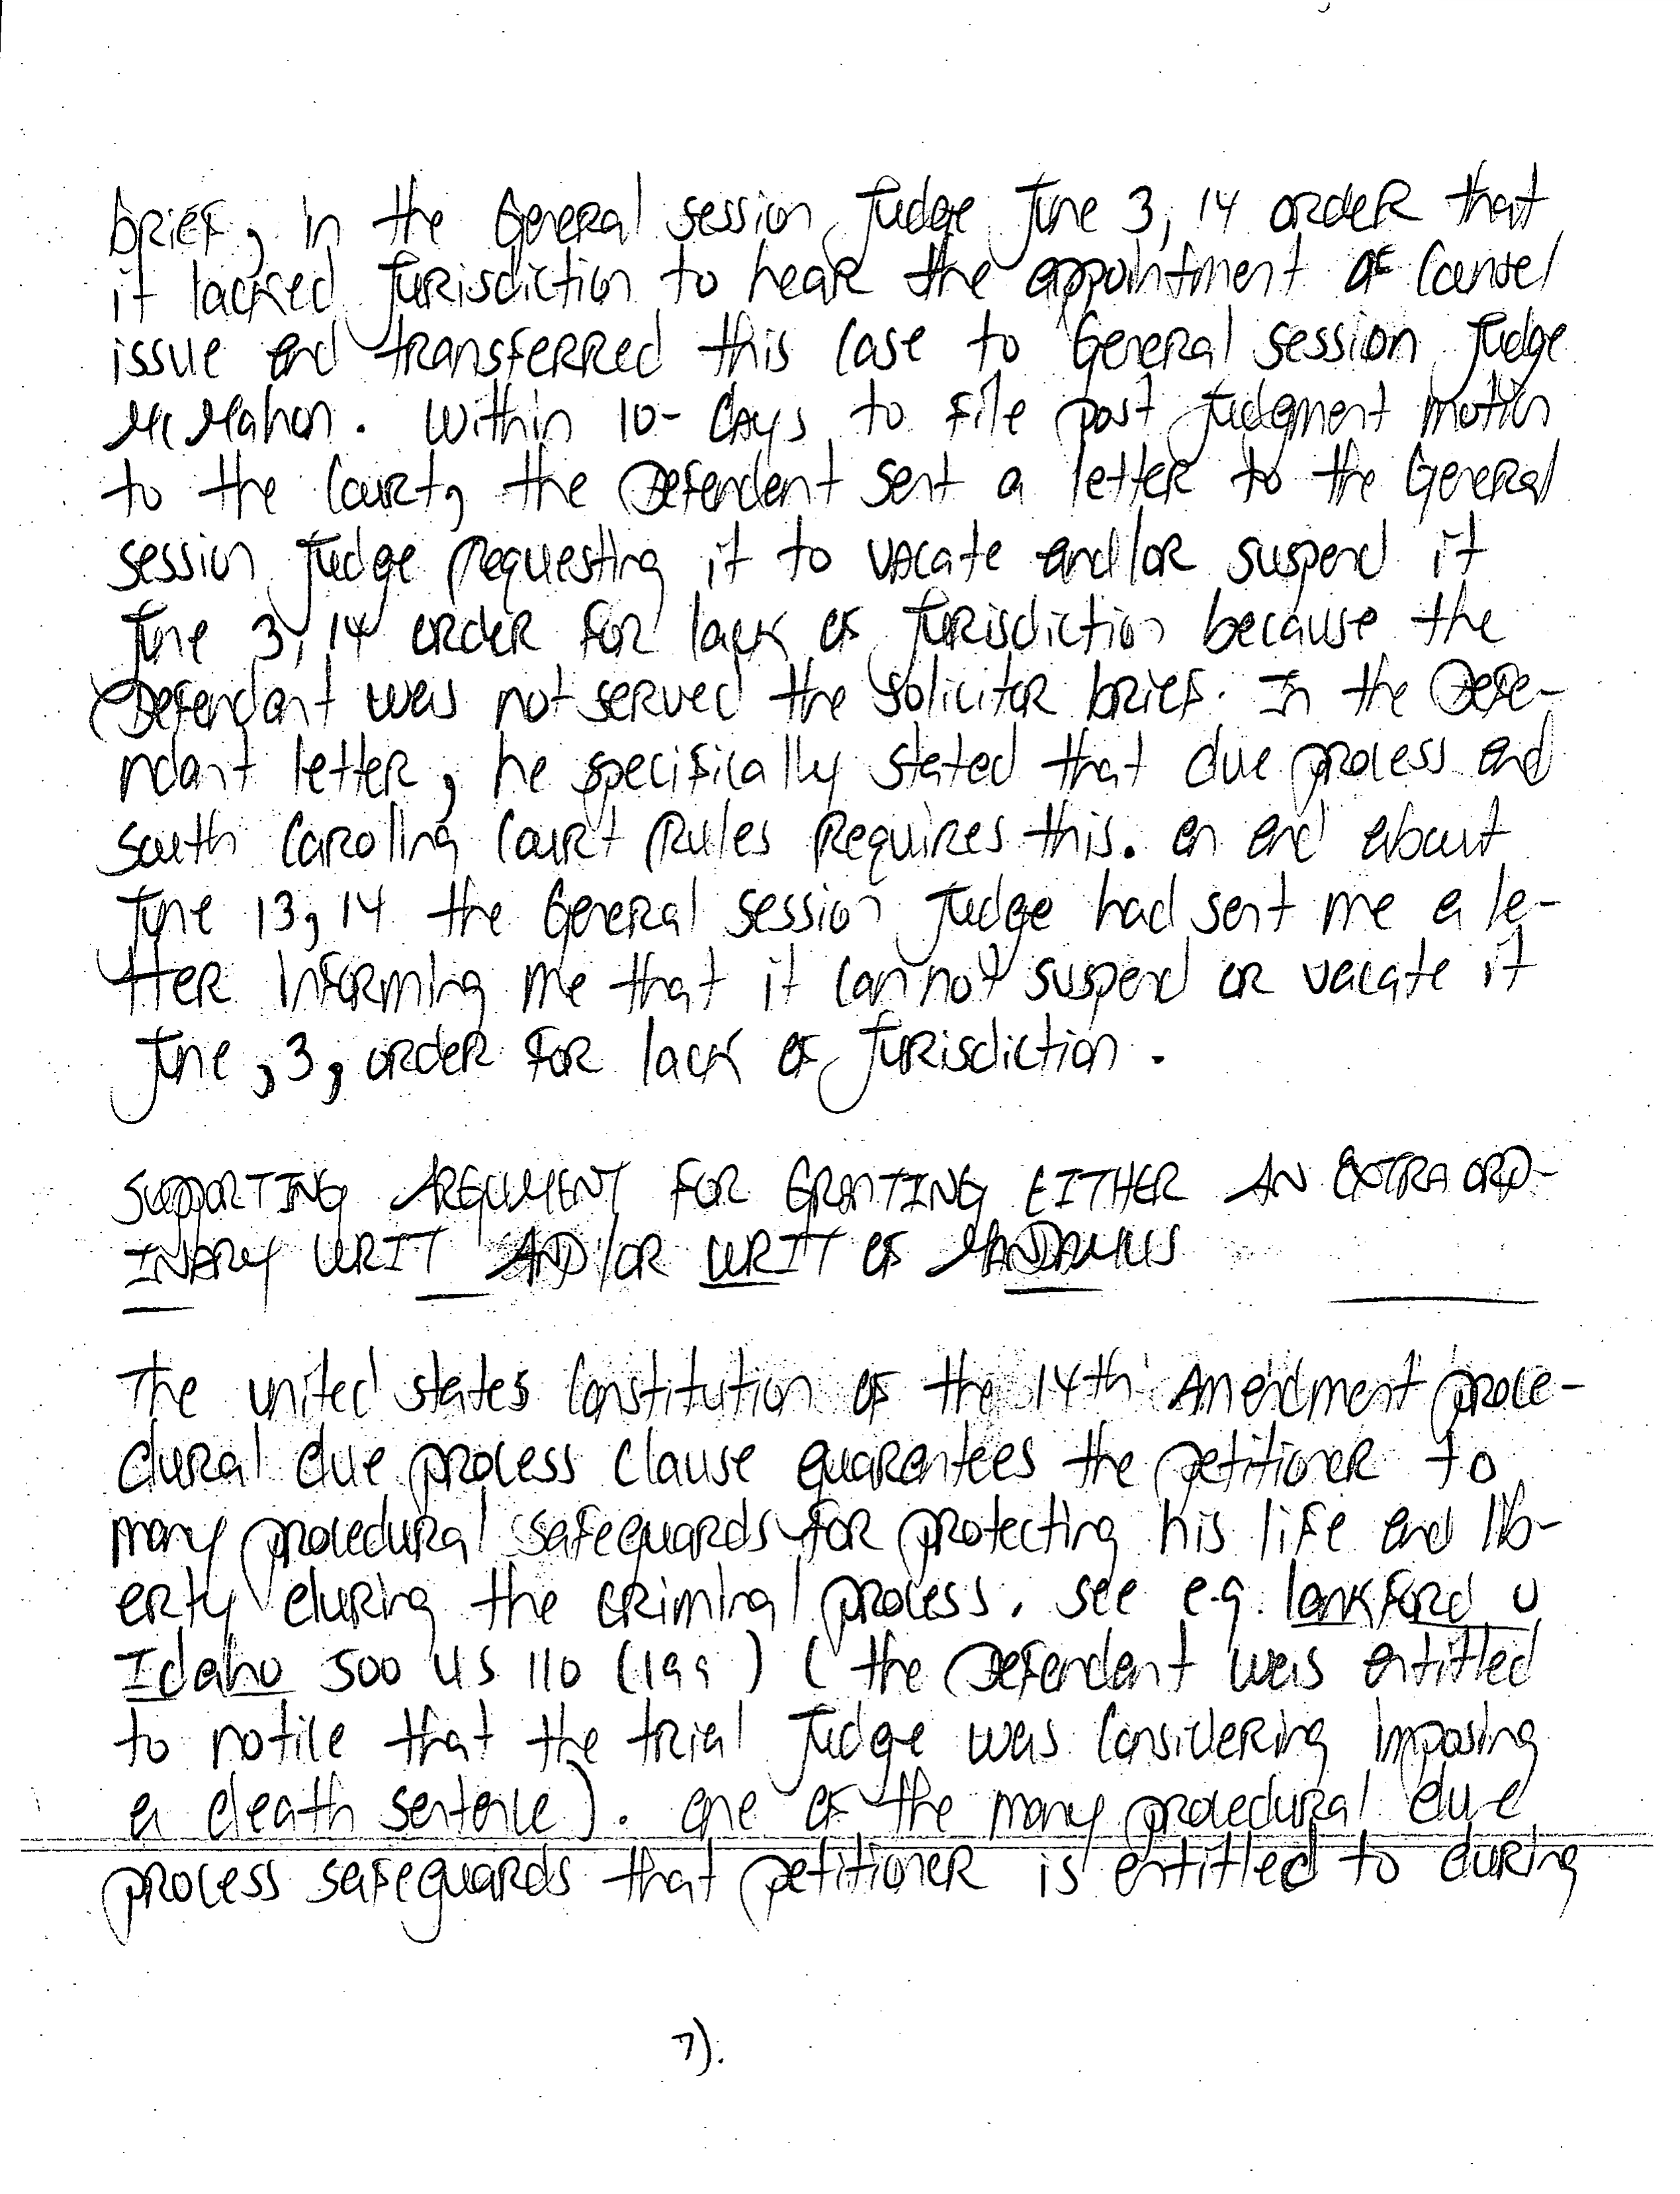 brief, in the General session Judge June 3, 14 order that
it lacked Jurisdiction to hear the appointment of Counsel
issue and transferred this case to General session Judge
McMahon. Within 10-days to file post Judgment motion
to the Court, the Defendant sent a letter to the General
session Judge requesting it to vacate and/or suspend it
June 3, 14 order for lack of Jurisdiction because the
Defendant was not served the solicitor brief. In the Defe-
ndant letter, he specifically stated that due process and
South Carolina Court Rules Requires this. on and about
June 13, 14 the General session Judge had sent me a le-
tter informing me that it can not suspend or vacate it
June, 3, order for lack of Jurisdiction.
SUPPORTING ARGUMENT FOR GRANTING EITHER AN EXTRAORD-
INARY WRIT AND/OR WRIT OF MANDAMUS
The united states Constitution of the 14th Amendment proce-
dural due process clause guarantees the petitioner to
many procedural safeguards for protecting his life and lib-
erty during the criminal process. see e.g. lankford v
Idaho 500 US 110 (199 ) (the Defendant was entitled
to notice that the trial Judge was Considering imposing
a death sentence). one of the many procedural due
process safeguards that petitioner is entitled to during
7).